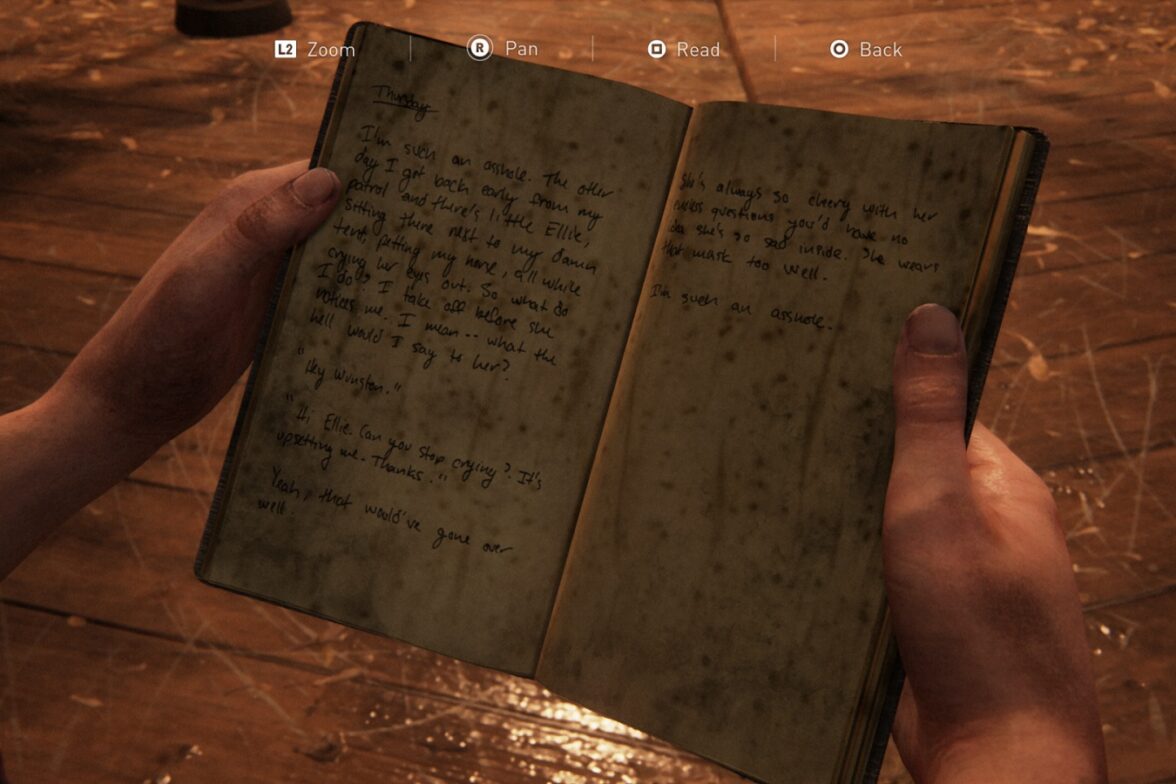 L2 Zoom
R Pan
Read
Back
Thursday
I'm such an asshole. The other
day I get back early from my
patrol and there's little Ellie,
sitting there next to my damn
tent, petting my horse, all while
crying her eyes out. So what do
I do? I take off before she
notices me. I mean-- what the
hell would I say to her?
"Hey Winston."
"Hi Ellie. Can you stop crying? It's
upsetting me. Thanks."
Yeah, that would've gone over
well.
She's always so cheery with her
questions you'd have no
idea she's so sad inside. She wears
that mask too well.
I'm such an asshole.